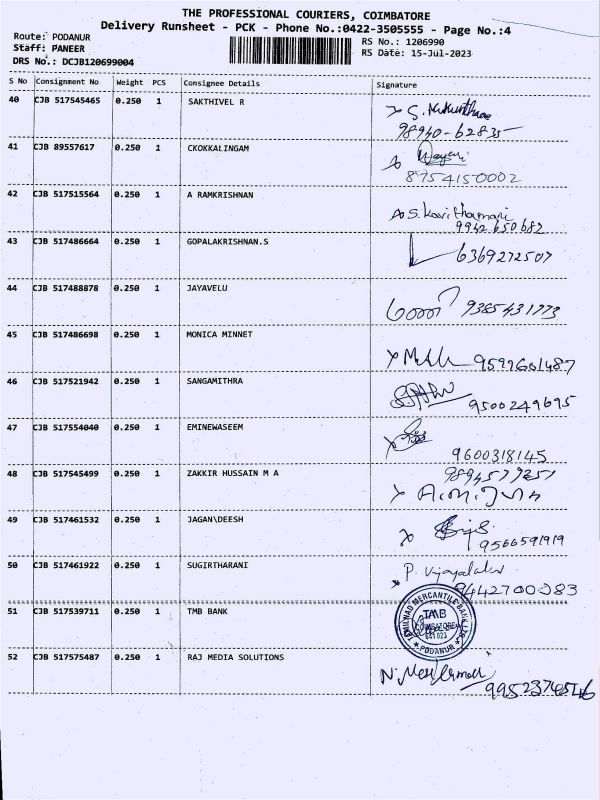 THE PROFESSIONAL COURIERS, COIMBATORE
Delivery Runsheet - PCK - Phone No.:0422-3505555 - Page No.:4
Route: PODANUR
RS No.: 1206990
Staff: PANEER
RS Date: 15-Jul-2023
DRS No.: DCJB120699004
S No Consignment No Weight PCS Consignee Details Signature
40 CJB 517545465 0.250 1 SAKTHIVEL R
98940-62835
41 CJB 89557617 0.250 1 CKOKKALINGAM
8754150002
42 CJB 517515564 0.250 1 A RAMKRISHNAN S. Kavithamani
9942650682
43 CJB 517486664 0.250 1 GOPALAKRISHNAN.S 6369272507
44 CJB 517488878 0.250 1 JAYAVELU 9385431773
45 CJB 517486698 0.250 1 MONICA MINNET 9597601487
46 CJB 517521942 0.250 1 SANGAMITHRA
9500249695
47 CJB 517554040 0.250 1 EMINEWASEEM
9600318145
48 CJB 517545499 0.250 1 ZAKKIR HUSSAIN M A
49 CJB 517461532 0.250 1 JAGAN\DEESH
9566591919
50 CJB 517461922 0.250 1 SUGIRTHARANI P. Vijayalakshmi
9442700083
51 CJB 517539711 0.250 1 TMB BANK TAMILNAD MERCANTILE BANK LTD.
TMB
COIMBATORE
641 023
PODANUR
52 CJB 517575487 0.250 1 RAJ MEDIA SOLUTIONS